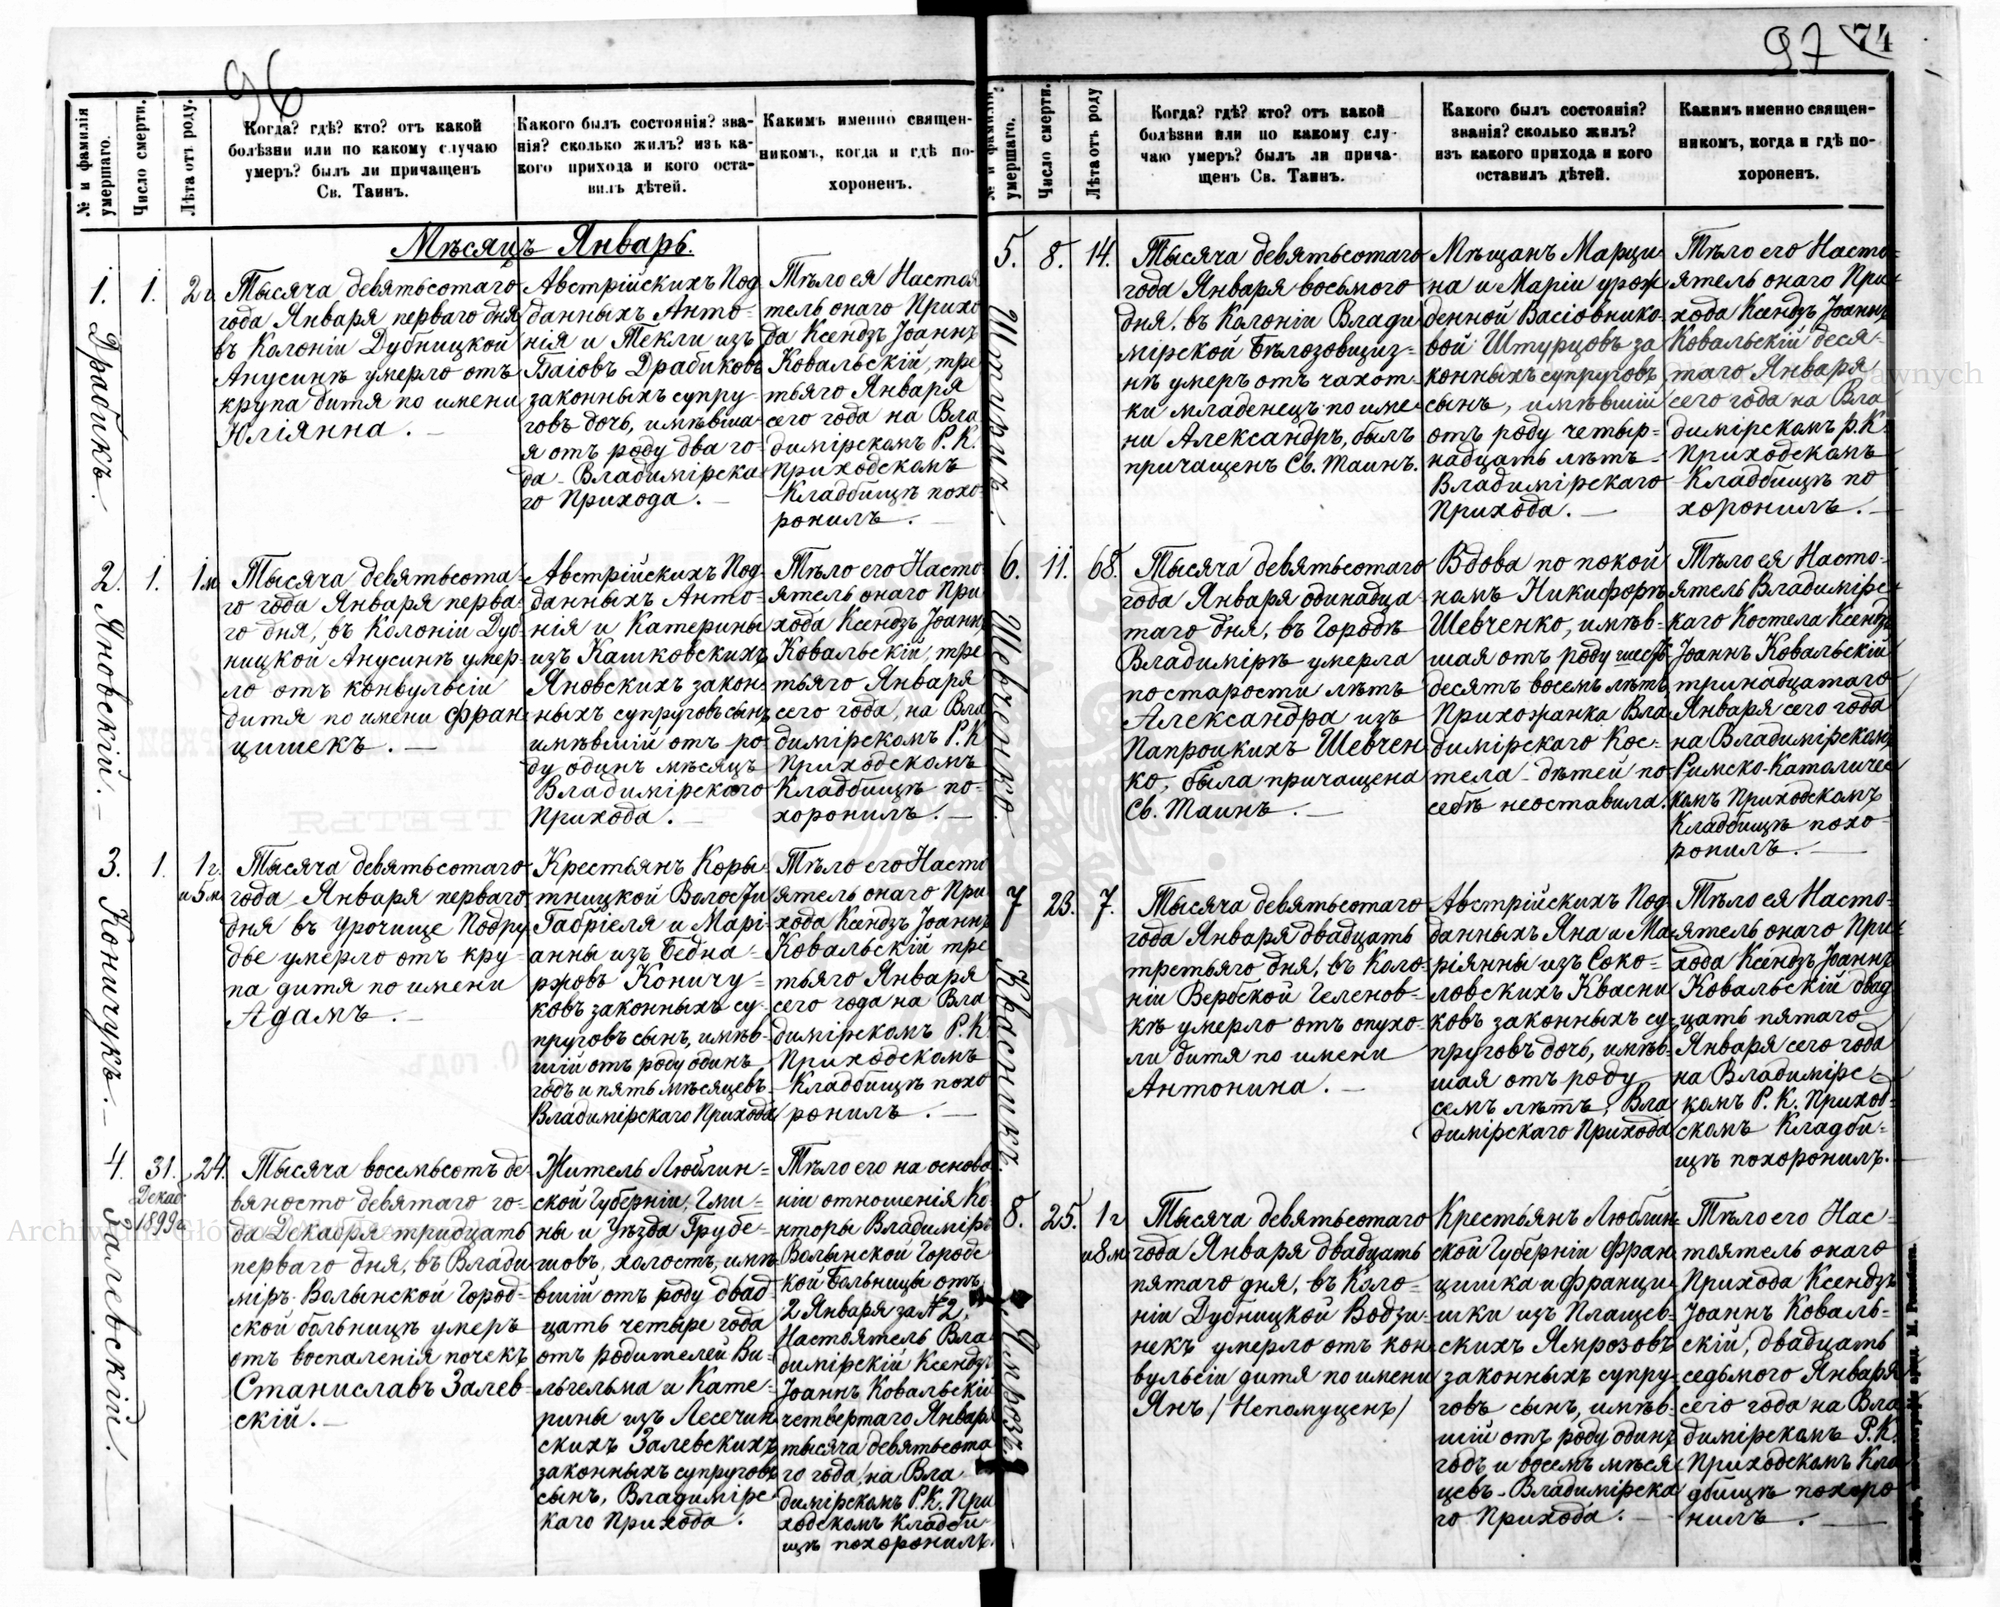 96
№ и фамилія умершаго.
Число смерти.
Лѣта отъ роду.
Когда? гдѣ? кто? отъ какой
болѣзни или по какому случаю
умеръ? былъ ли причащенъ
Св. Таинъ.
Какого былъ состоянія? зва-
нія? сколько жилъ? изъ ка-
кого прихода и кого оста-
вилъ дѣтей.
Какимъ именно священ-
никомъ, когда и гдѣ по-
хороненъ.
Мѣсяцъ Январь.
1. Драбикъ.
1.
2 г.
Тысяча девятьсотаго
года Января перваго дня
въ Колоніи Дубницкой
Анусинѣ умерло отъ
крупа дитя по имени
Юліянна. —
Австрійскихъ Под
данныхъ Анто-
нія и Текли изъ
Баіовъ Драбиковъ
законныхъ супру-
говъ дочь, имѣвша-
я отъ роду два го-
да - Владимірска-
го Прихода. —
Тѣло ея Настоя
тель онаго Прихо
да Ксендзъ Іоаннъ
Ковальскій, тре
тьяго Января
сего года на Вла
димірскомъ Р. К.
Приходскомъ
Кладбищѣ похо-
ронилъ. —
2. Яновскій. —
1.
1 м
Тысяча девятьсота-
го года Января перва-
го дня, въ Колоніи Дуб-
ницкой Анусинѣ умер-
ло отъ конвульсіи
дитя по имени Фран-
цишекъ. —
Австрійскихъ Под-
данныхъ Анто-
нія и Катерины
изъ Кашковскихъ
Яновскихъ закон-
ныхъ супруговъ сынъ
имѣвшій отъ ро-
ду одинъ мѣсяцъ
Владимірскаго
Прихода. —
Тѣло его Насто-
ятель онаго При
хода Ксендзъ Іоаннъ
Ковальскій, тре
тьяго Января
сего года, на Вла
димірскомъ Р. К.
Приходскомъ
Кладбищѣ по-
хоронилъ. —
3. Коничукъ. —
1.
1 г.
и 5 м.
Тысяча девятьсотаго
года Января перваго
дня въ урочище Подру
дье умерло отъ кру-
па дитя по имени
Адамъ. —
Крестьянъ Коры-
тницкой Волости
Габріеля и Марі-
анны изъ Бедна-
ржовъ Коничу-
ковъ законныхъ су-
пруговъ сынъ, имѣв-
шій отъ роду одинъ
годъ и пять мѣсяцевъ
Владимірскаго Прихода
Тѣло его Насто
ятель онаго При
хода Ксендзъ Іоаннъ
Ковальскій тре
тьяго Января
сего года на Вла
димірскомъ Р. К.
Приходскомъ
Кладбищѣ похо
ронилъ. —
4. Залевскій. —
31.
Декаб.
1899 г.
24.
Тысяча восемьсотъ де-
вяносто девятаго го-
да Декабря тридцать
перваго дня, въ Влади
міръ-Волынской Город-
ской больницѣ умеръ
отъ воспаленія почекъ
Станиславъ Залев-
скій. —
Житель Люблин-
ской Губерніи, Гми-
ны и Уѣзда Грубе-
шовъ, холостъ, имѣ-
вшій отъ роду двад
цать четыре года
отъ родителей Ви-
льгельма и Кате-
рины изъ Лесечин
скихъ Залевскихъ
законныхъ супруговъ
сынъ, Владимірс-
каго Прихода.
Тѣло его на основа
ніи отношенія Ко
нторы Владимірь
Волынской Городс
кой Больницы отъ
2 Января за № 2,
Настоятель Вла
димірскій Ксендзъ
Іоаннъ Ковальскій
четвертаго Января
тысяча девятьсота
го года, на Вла
димірскомъ Р. К. При
ходскомъ Кладби
щѣ похоронилъ.
97 74
№ и фамилія умершаго.
Число смерти.
Лѣта отъ роду
Когда? гдѣ? кто? отъ какой
болѣзни или по какому слу-
чаю умеръ? былъ ли прича-
щенъ Св. Таинъ.
Какого былъ состоянія?
званія? сколько жилъ?
изъ какого прихода и кого
оставилъ дѣтей.
Какимъ именно священ-
никомъ, когда и гдѣ по-
хороненъ.
5. Штурцъ.
8.
14.
Тысяча девятьсотаго
года Января восьмого
дня, въ Колоніи Влади
мірской Бѣлозовщиз-
нѣ умеръ отъ чахот-
ки младенецъ по име-
ни Александръ, былъ
причащенъ Св. Таинъ.
Мѣщанъ Марци-
на и Маріи урож
денной Васіовнико-
вой Штурцовъ за
конныхъ супруговъ
сынъ, имѣвшій
отъ роду четыр-
надцать лѣтъ
Владимірскаго
Прихода. —
Тѣло его Насто-
ятель онаго При-
хода Ксендзъ Іоаннъ
Ковальскій деся-
таго Января
сего года на Вла
димірскомъ Р. К.
Приходскомъ
Кладбищѣ по
хоронилъ. —
6. Шевченко.
11.
68.
Тысяча девятьсотаго
года Января одинадца-
таго дня, въ Городѣ
Владимірѣ умерла
по старости лѣтъ
Александра изъ
Папроцкихъ Шевчен
ко, была причащена
Св. Таинъ. —
Вдова по покой
номъ Никифорѣ
Шевченко, имѣв-
шая отъ роду шесть
десятъ восемь лѣтъ
Прихожанка Вла
димірскаго Кос-
тела - дѣтей по
себѣ неоставила.
Тѣло ея Насто-
ятель Владимірс-
каго Костела Ксендзъ
Іоаннъ Ковальскій
тринадцатаго
Января сего года
на Владимірскомъ
Римско-Католичес
комъ Приходскомъ
Кладбищѣ похо-
ронилъ. —
7 Квасникъ.
23.
7.
Тысяча девятьсотаго
года Января двадцать
третьяго дня, въ Коло-
ніи Вербской Геленов-
кѣ умерло отъ опухо-
ли дитя по имени
Антонина. —
Австрійскихъ Под
данныхъ Яна и Ма-
ріянны изъ Соко-
ловскихъ Квасни
ковъ законныхъ су-
пруговъ дочь, имѣв-
шая отъ роду
семь лѣтъ, Вла
димірскаго Прихода
Тѣло ея Насто-
ятель онаго При-
хода Ксендзъ Іоаннъ
Ковальскій двад
цать пятаго
Января сего года
на Владимірс-
комъ Р. К. Приход-
скомъ Кладби-
щѣ похоронилъ.
8. Ямрозъ
25.
1 г
и 8 м
Тысяча девятьсотаго
года Января двадцать
пятаго дня, въ Коло-
ніи Дубницкой Водзи-
некъ умерло отъ кон-
вульсіи дитя по имени
Янъ /Непомуценъ/
Крестьянъ Люблин-
ской Губерніи Фран
цишка и Франци-
шки изъ Плащев-
скихъ Ямрозовъ
законныхъ супру-
говъ сынъ, имѣв-
шій отъ роду одинъ
годъ и восемь мѣся
цевъ - Владимірска
го Прихода. —
Тѣло его Нас-
тоятель онаго
Прихода Ксендзъ
Іоаннъ Коваль-
скій, двадцать
седьмого Января
сего года на Вла
димірскомъ Р. К.
Приходскомъ Кла
дбищѣ похоро
нилъ. —